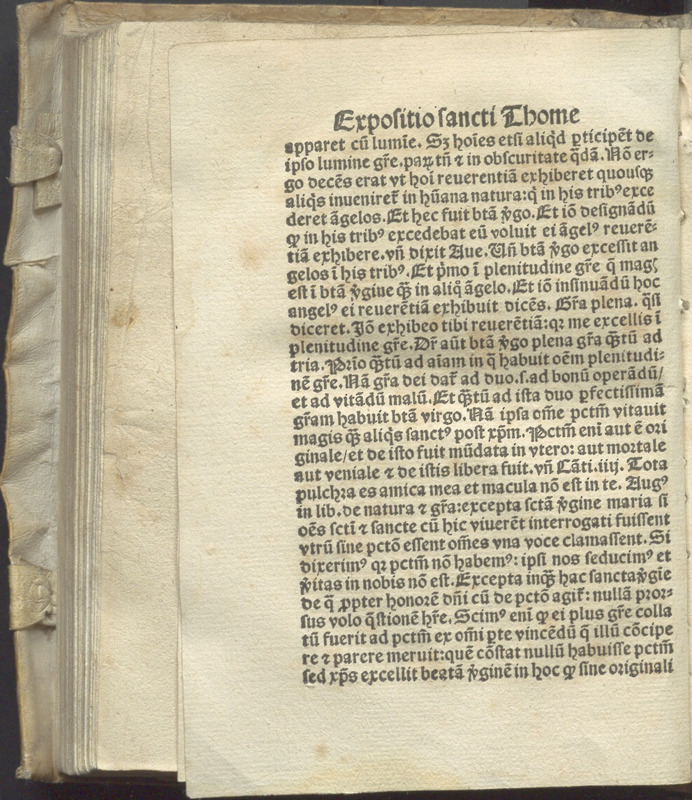 Expositio sancti Thome
apparet cū lumīe. Sꝫ hoīes etsi aliqͥd ꝑticipēt de
ipso lumine grē. parū tn̄ ⁊ in obscuritate qͣdā. Nō er⸗
go decēs erat vt hoī reuerentiā exhiberet quousqꝫ
aliqͥs inueniret᷑ in hūana natura: qͥ in his tribꝰ exce
deret āgelos. Et hec fuit btā ꝟgo. Et iō designādū
ꝙ in his tribꝰ excedebat eū voluit ei āgelꝰ reuerē⸗
tiā exhibere. vn̄ dixit Aue. Un̄ btā ꝟgo excessit an
gelos ī his tribꝰ. Et pͥmo ī plenitudine grē q̄ magꝭ
est ī btā ꝟgine qꝫ̄ in aliqͦ āgelo. Et iō insinuādū hoc
angelꝰ ei reuerētiā exhibuit dicēs. Grā plena. qͣsi
diceret. Jō exhibeo tibi reuerētiā: qꝛ me excellis ī
plenitudine grē. Dr̄ aūt btā ꝟgo plena grā qꝫ̄tū ad
tria. Prīo qꝫ̄tū ad aīam in qͣ habuit oēm plenitudi⸗
nē grē. Nā grā dei dat᷑ ad duo. s. ad bonū operādū/
et ad vitādū malū. Et qꝫ̄tū ad ista duo ꝑfectissimā
grām habuit btā virgo. Nā ipsa om̄e pctm̄ vitauit
magis qꝫ̄ aliqͥs sanctꝰ post xp̄m. Pctm̄ eni aut ē ori
ginale/ et de isto fuit mūdata in vtero: aut mortale
aut veniale ⁊ de istis libera fuit. vn̄ Cāti. iiij. Tota
pulchra es amica mea et macula nō est in te. Augꝰ
in lib. de natura ⁊ grā: excepta sctā ꝟgine maria si
oēs sctī ⁊ sancte cū hic viuerēt interrogati fuissent
vtrū sine pctō essent om̄es vna voce clamassent. Si
dixerimꝰ qꝛ pctm̄ nō habemꝰ: ipsi nos seducimꝰ et
ꝟitas in nobis nō est. Excepta inqͣꝫ hac sancta ꝟgīe
de q̄ ꝓpter honorē dn̄i cū de pctō agit᷑: nullā pror⸗
sus volo qͣstionē hr̄e. Scimꝰ enī ꝙ ei plus grē colla
tū fuerit ad pctm̄ ex om̄i ꝑte vincēdū q̄ illū cōcipe
re ⁊ parere meruit: quē cōstat nullū habuisse pctm̄
sed xp̄s excellit beatā ꝟginē in hoc ꝙ sine originali